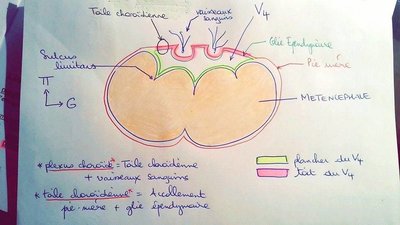 Toile choroïdienne
vaisseaux
sanguins
V4
Glie Ependymaire
Pie mère
Sulcus
limitans
G
METENCEPHALE
* plexus choroïde* = Toile choroïdienne
+ vaisseaux sanguins
* toile choroïdienne* = Accollement
pie-mère + glie épendymaire
plancher du V4
toit du V4